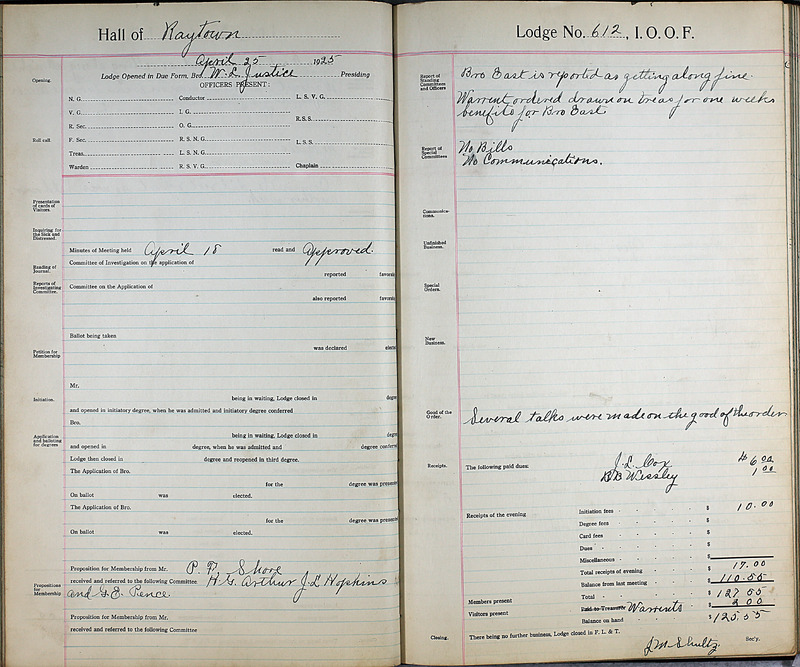 Hall of Raytown
April 25 1925
Opening.
Lodge Opened in Due Form, Bro. W. L. Justice Presiding
OFFICERS PRESENT:
Roll call.
N. G. Conductor L. S. V. G.
V. G. I. G.
R. Sec. O. G. R.S.S.
F. Sec. R. S. N. G.
Treas. L. S. N. G. L. S.S.
Warden R. S. V. G. Chaplain
Presentation
of cards of
Visitors.
Inquiring for
the Sick and
Distressed.
Minutes of Meeting held April 18 read and Approved.
Reading of
Journal.
Committee of Investigation on the application of
reported favorab
Reports of
Investigating
Committee.
Committee on the Application of
also reported favorab
Ballot being taken
was declared electe
Petition for
Membership
Mr.
Initiation.
being in waiting, Lodge closed in degr
and opened in initiatory degree, when he was admitted and initiatory degree conferred
Bro.
Application
and balloting
for degrees
being in waiting, Lodge closed in degr
and opened in degree, when he was admitted and degree conferre
Lodge then closed in degree and reopened in third degree.
The Application of Bro.
for the degree was presente
On ballot was elected.
The Application of Bro.
for the degree was presente
On ballot was elected.
Proposition for Membership from Mr. P. F. Shore
Propositions
for
Membership
received and referred to the following Committee H. G. Arthur J. L. Hopkins
and G. E. Pence.
Proposition for Membership from Mr.
received and referred to the following Committee
Lodge No. 612, I. O. O. F.
Report of
Standing
Committees
and Officers
Bro East is reported as getting along fine.
Warrent ordered drawn on treas for one weeks
benefits for Bro East
Report of
Special
Committees
No Bills
No Communications.
Communica-
tions.
Unfinished
Business.
Special
Orders.
New
Business.
Good of the
Order.
Several talks were made on the good of the order
Receipts.
The following paid dues: J. L. Cox $ 6.00
B B Wessley 1.00
Receipts of the evening Initiation fees $ 10.00
Degree fees $
Card fees $
Dues $
Miscellaneous $
Total receipts of evening $ 17.00
Balance from last meeting $ 110.55
Members present Total $ 127 55
Visitors present Paid to Treasurer Warrents $ 2 00
Balance on hand $ 125.55
Closing.
There being no further business, Lodge closed in F. L. & T.
J M Shultz. Sec'y.